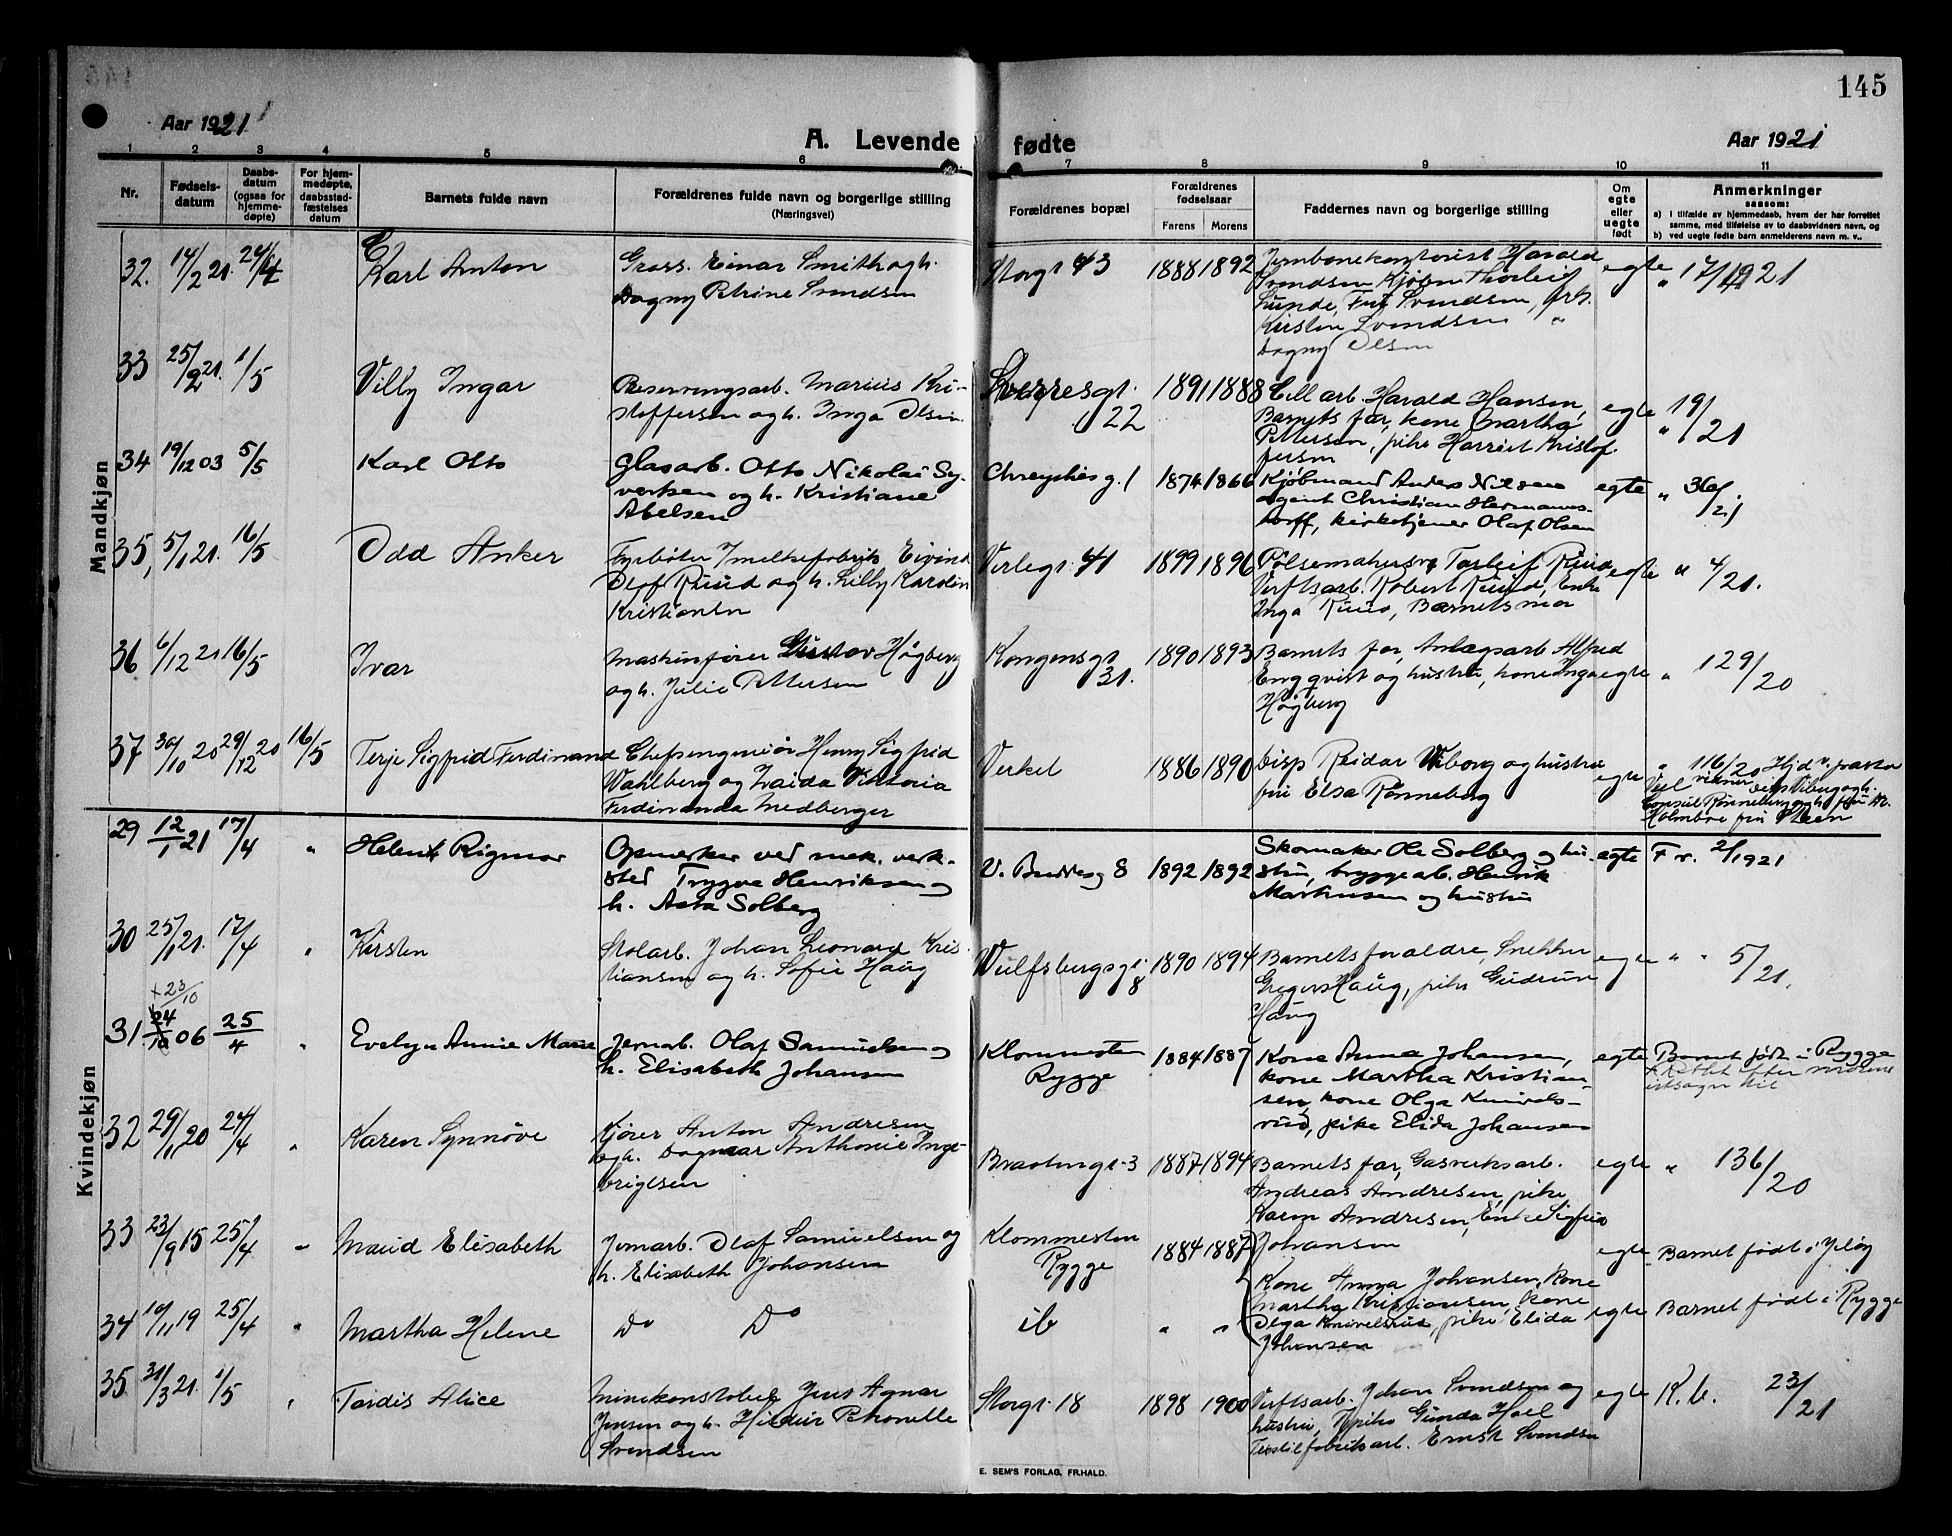 145
Aar 1921
A. Levende fødte
Aar 1921
1 2 3 4 5 6 7 8 9 10 11
Nr.
Fødsels-
datum
Daabs-
datum
(ogsaa for
hjemme-
døpte)
For hjem-
medøpte,
daabsstad-
fæstelses
datum
Barnets fulde navn
Forældrenes fulde navn og borgerlige stilling
(Næringsvei)
Forældrenes bopæl
Forældrenes
fødselsaar
Farens Morens
Faddernes navn og borgerlige stilling
Om
egte
eller
uegte
født
Anmerkninger
saasom:
a) I tilfælde av hjemmedaab, hvem der har forrettet
samme, med tilføielse av to daabsvidners navn, og
b) ved uegte fødte barn anmelderens navn m. v..
Mandkjøn
32. 14/2 21. 24/4
Karl Anton
Gross. Einar Smith og h.
Dagny Petrine Svendsen
Storgt 43
1888 1892
Jernbanekontorist Harald
Svendsen Kjøbm Thorleif
Sunde, Fru Svendsen, frk.
Kirsten Svendsen "
Dagny Olsen
egte
" 17/1921
33 25/2 21. 1/5
Villy Ingar
Reserveringsarb. Marius Kri-
stoffersen og h. Inga Olsen
Sverresgt.
22
1891 1888
Cell arb. Harald Hansen,
Barnets far, kone Martha
Pettersen, pike Harriet Kristof-
fersen
egte
" 19/21
34 19/12 03 5/5
Karl Otto
Glasarb. Otto Nikolai Sy-
vertsen og h. Kristiane
Abelsen
1874 1866
Kjøbmand Anders Nilsen
agent Christian Hermans-
torff, kirketjener Olaf Olsen
egte
" 36/21
35, 5/1 21. 16/5
Odd Anker
Fyrbøter I meltsefabrik Eivind
Olaf Ruud og h. Lilly Karolin
Kristiansen
Verlegt. 41
1899 1896
Pølsemakersv. Torleif Ruud
Verftsarb. Robert Ruud, Enke
Inga Ruud, Barnets mor
egte
" 4/21.
36 6/12 21 16/5
Ivar
Maskinfører Gustav Högberg
og h. Julie Pettersen
Kongensgt
31.
1890 1893
Barnets far, Anlægsarb Alfred
Engqvist og hustru, kone Inga
Högberg
egte
" 129/20
37 30/10 20 29/12 20 16/5
Terje Sigfrid Ferdinand
Chefsengeniör Henry Sigfrid
Wahlberg og Zaida Viktoria
Ferdinanda Medberger
Verket
1886 1890
Disp Reidar Viborg og hustru
fru Elsa Rønneberg
egte
" 116/20 Hjd v. pastor
Holmboe fru Steen
Kvindekjøn
29 12/1 21 17/4 "
Helene Rigmor
Opmerker ved mek. verk-
sted Trygve Henriksen og
h. Asta Solberg
V. Buddesg 8
1892 1892
Skomaker Ole Solberg og hu-
stru, bryggearb. Henrik
Marthinsen og hustru
egte
Fr. 2/1921
30 25/1 21. 17/4 "
Kirsten
Stolarb. Johan Leonard Kris-
tiansen og h. Sofie Haug
Wulfsbergsgt.
8
1890 1894
Barnets foraldre, Snekker
Gregers Haug, pike Gudrun
Haug
egte
" " 5/21.
+ 23/10
31. 24/10 06 25/4 "
Evelyn Annie Marie
Jernarb. Olaf Samuelsen og
h. Elisabeth Johansen
Klommesten
Rygge
1884 1887
Kone Anna Johansen,
kone Martha Kristian-
sen, kone Olga Knivels-
rud, pike Elida Johansen
egte
Barnet født i Rygge
+ Rettet efter moderens
utsagn
32 29/11 20 24/4 "
Karen Synnöve
Kjører Anton Andresen
og h. Dagmar Anthonie Inge-
brigtsen
Braatengt. 3
1887 1894
Barnets far, Gasverksarb.
Andreas Andresen, pike
Karen Andresen, Enke Sigfrid
Johansen
egte
" 136/20
33 23/9 15 25/4 "
Maud Elisabeth
Jernarb. Olaf Samuelsen og
h. Elisabeth Johansen
Klommesten
Rygge
1884 1887
Kone Anna Johansen, Kone
Martha Kristiansen, kone
Olga Knivelsrud, pike Elida
Johansen
egte
Barnet født i Jeløy
34 10/11 19 25/4 "
Martha Helene
Do Do
ib
" "
egte
Barnet født i Rygge
35 31/3 21. 1/5 "
Tordis Alice
Minekonstabel Jens Agnar
Jensen og h. Hildur Petronelle
Svendsen
Storgt. 18
1898 1900
Verftsarb. Johan Svendsen og
hustru, pike Gunda Hoel
Textilfabrikarb. Ernst Svendsen
egte
K. b. 23/21
E. SEM'S FORLAG, FR.HALD.